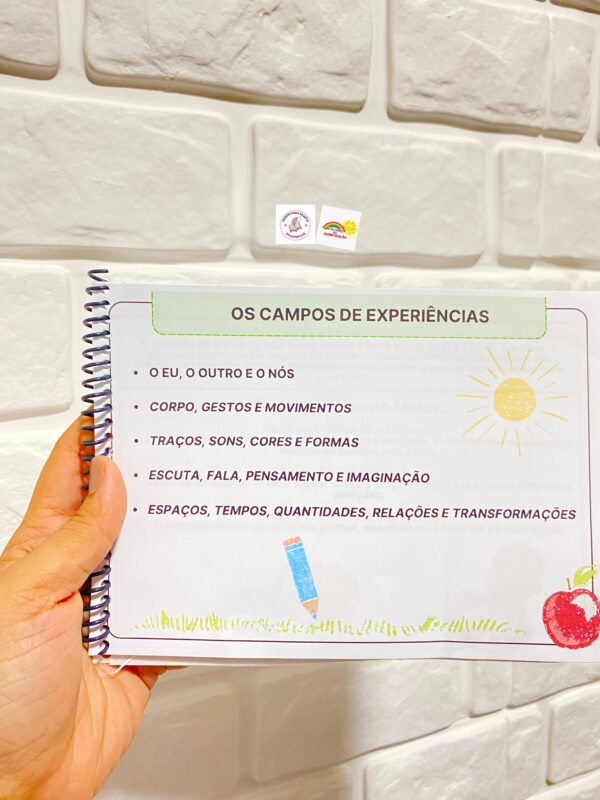 OS CAMPOS DE EXPERIÊNCIAS
• O EU, O OUTRO E O NÓS
• CORPO, GESTOS E MOVIMENTOS
• TRAÇOS, SONS, CORES E FORMAS
• ESCUTA, FALA, PENSAMENTO E IMAGINAÇÃO
• ESPAÇOS, TEMPOS, QUANTIDADES, RELAÇÕES E TRANSFORMAÇÕES